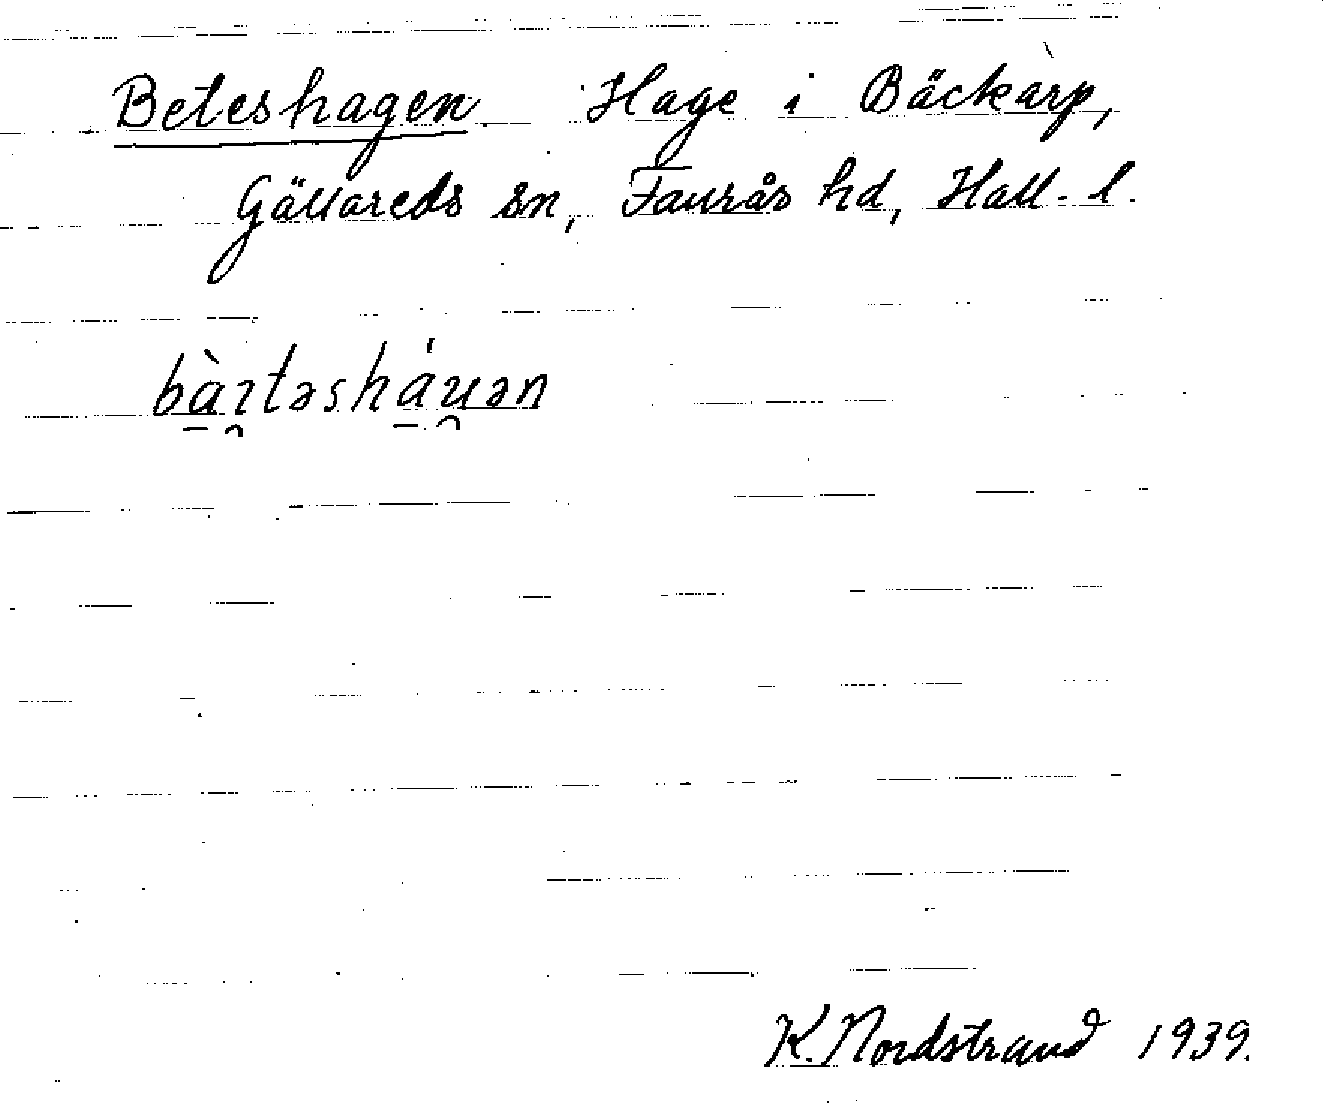 Beteshagen Hage i Bäckarp,
Gällareds sn, Faurås hd, Hall. l.
bà̱ı̯təshá̱u̯ən
K. Nordstrand 1939.